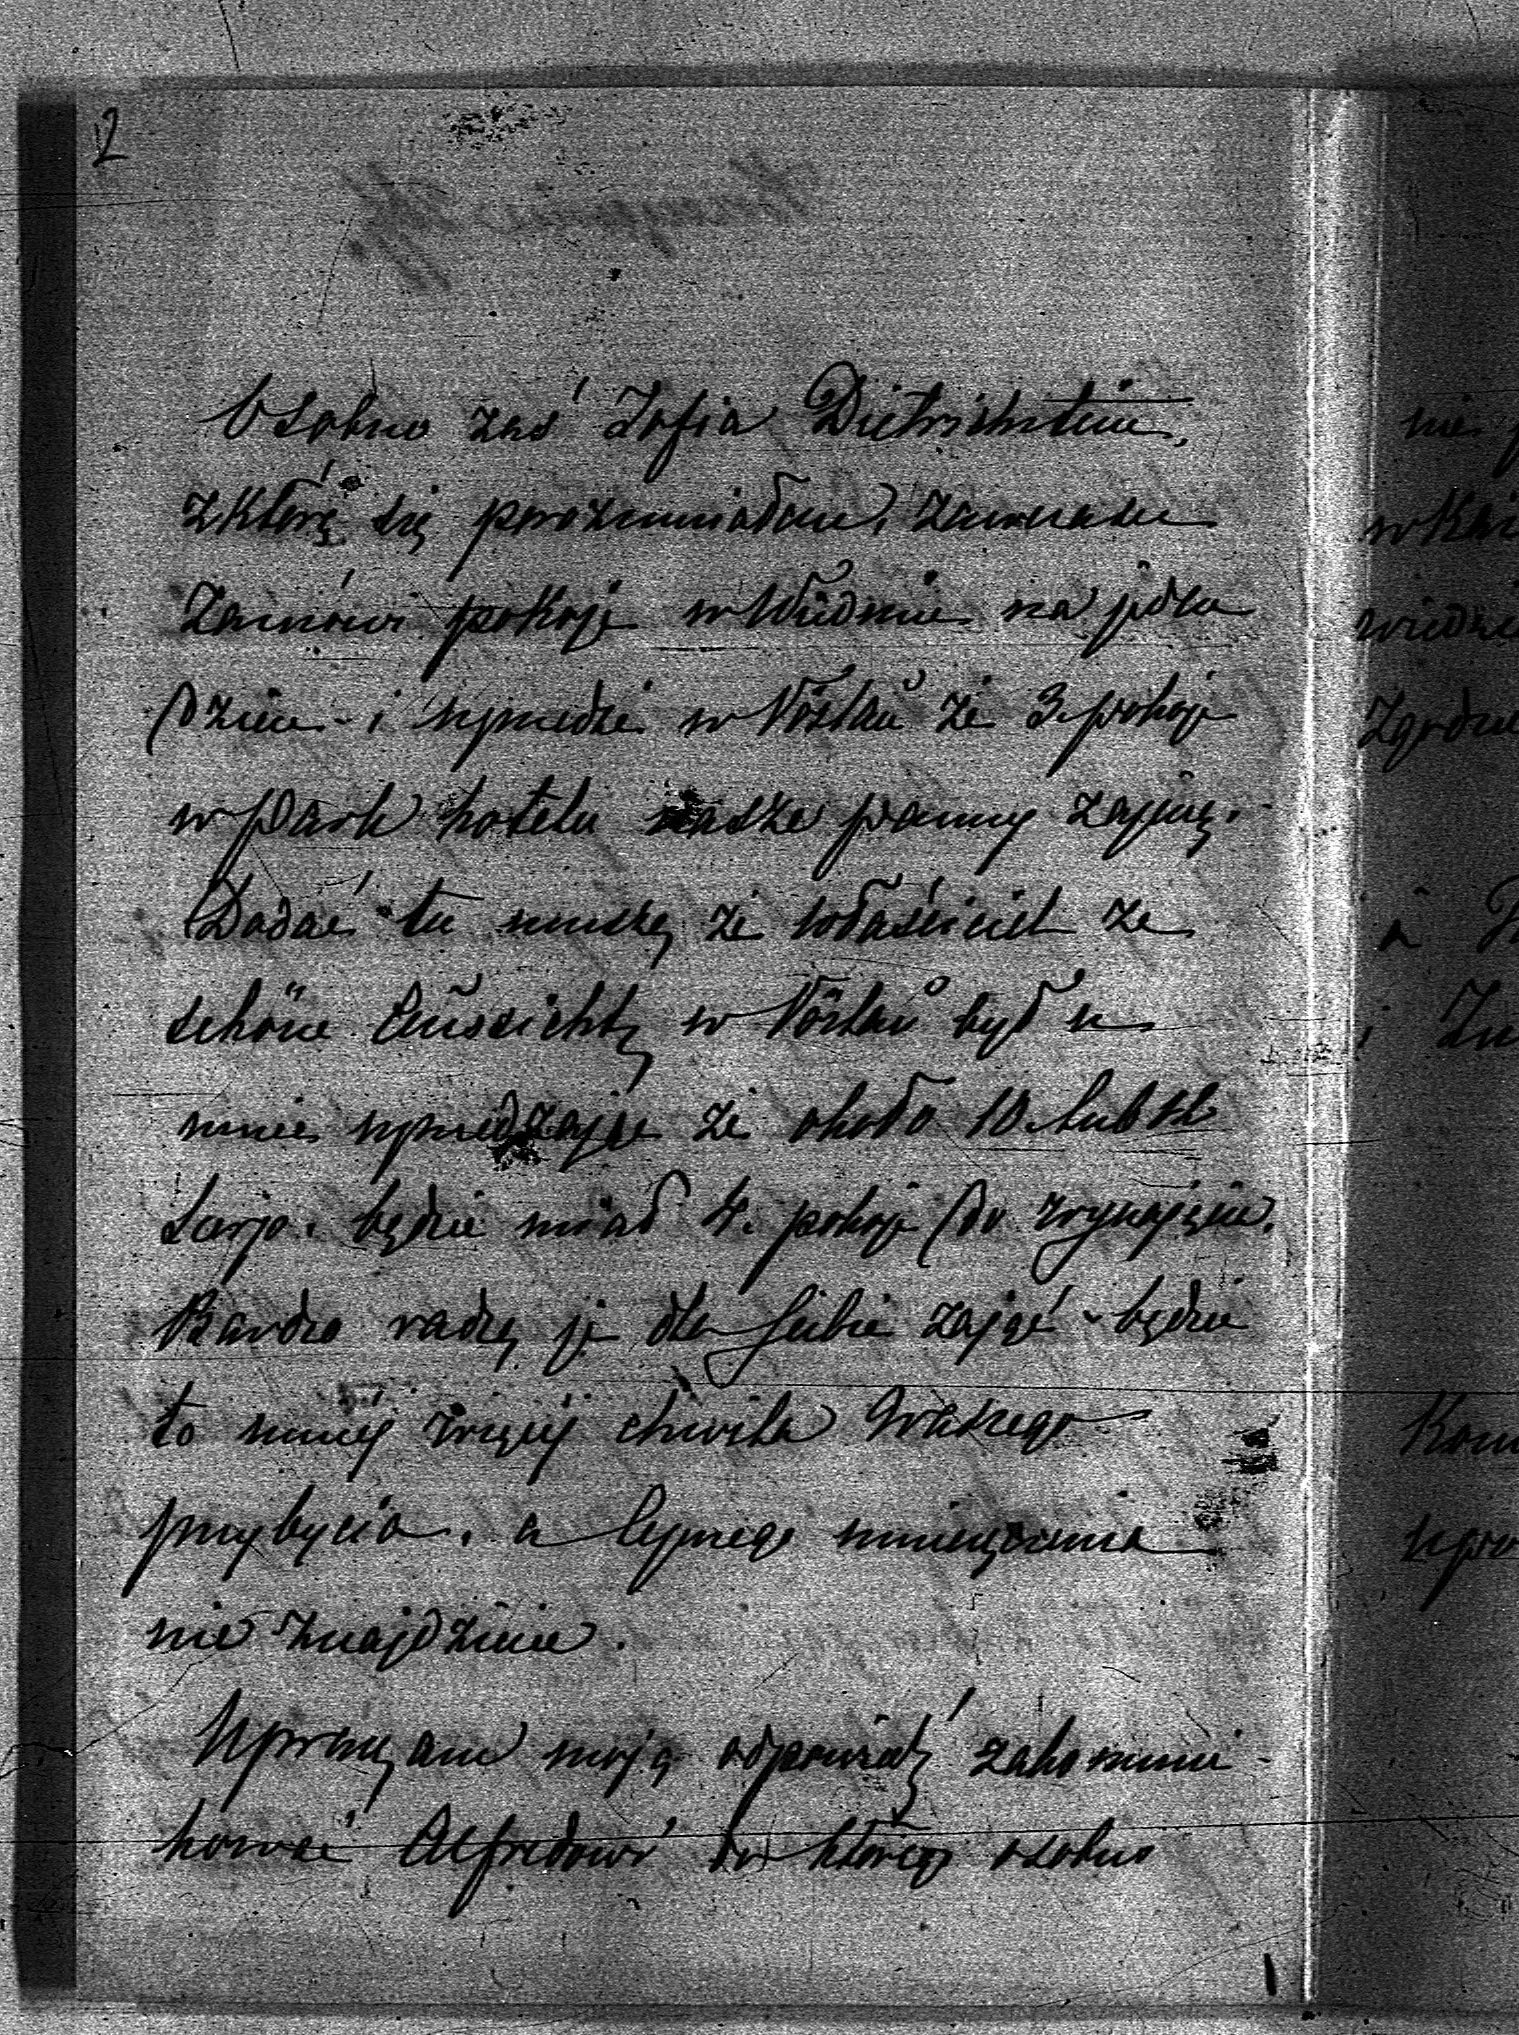 2
Osobno zaś Zofia Dietrichstein,
z którą się porozumiałem,
zamówi pokoje w Widniu na jeden
dzień - i uprzedzi w Vöslau że 3 pokoje
w Park hotelu nasze panny zajmą.
Dodać tu muszę że właściciel ze
schöne Aussicht w Vöslau był u
mnie uprzedzając że około 10. lub
sierp. będzie miał 4. pokoje do wynajęcia.
Bardzo radzę je dla siebie zająć - będzie
to mniej więcej chwila Waszego
przybycia. a lepszego
nie znajdziecie.
Upraszam moją odpowiedź zakomuni-
kować Alfredowi do którego osobno